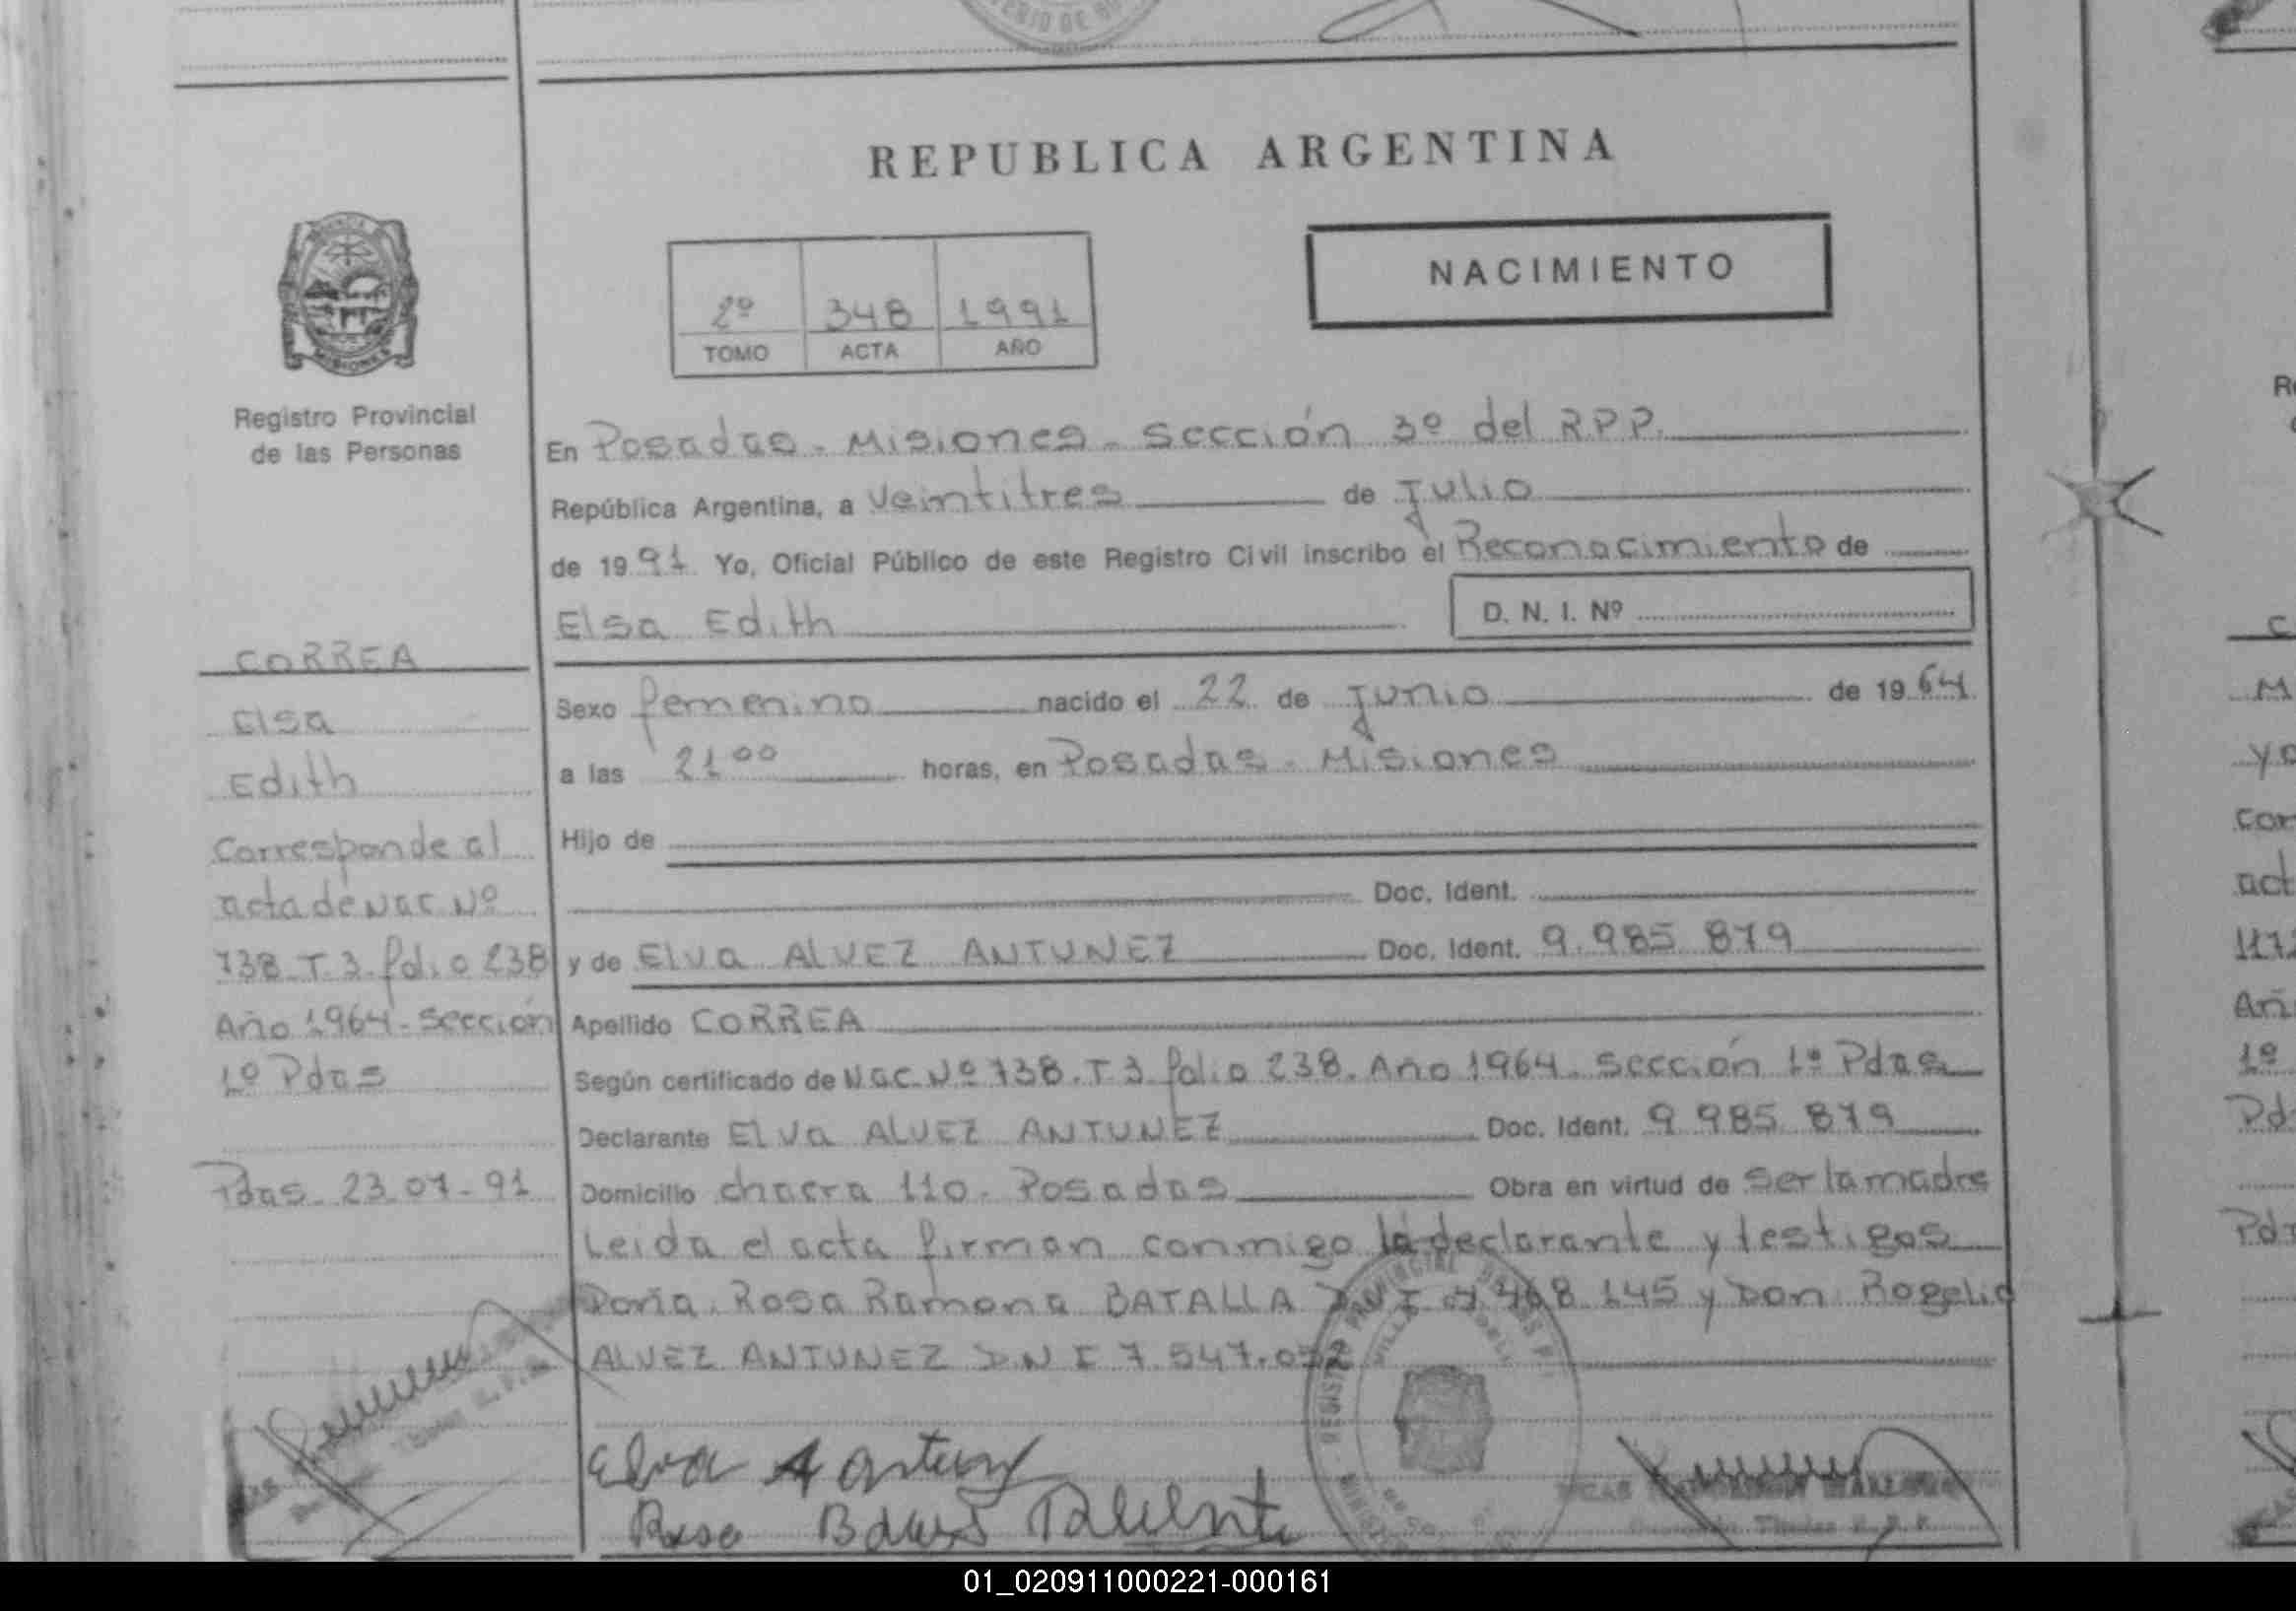 REPUBLICA ARGENTINA
NACIMIENTO
2º 348 1991
TOMO ACTA AÑO
Registro Provincial
de las Personas
CORREA
Elsa
Edith
Corresponde al
acta de Nac Nº
738 T. 3. folio 238
Año 1964 - Sección
1º Pdas
Pdas. 23-07-91
En Posadas - Misiones - Sección 3º del R.P.P.
República Argentina, a Veintitres de Julio
de 1991 Yo, Oficial Público de este Registro Civil inscribo el Reconocimiento de
Elsa Edith D. N. I. Nº
Sexo femenino nacido el 22 de Junio de 1964
a las 21 00 horas, en Posadas - Misiones
Hijo de
Doc. Ident.
y de Elva ALVEZ ANTUNEZ Doc. Ident. 9.985.879
Apellido CORREA
Según certificado de Nac Nº 738. T 3 folio 238. Año 1964. Sección 1º Pdas
Declarante Elva ALVEZ ANTUNEZ Doc. Ident. 9.985.879
Domicilio chacra 110. Posadas Obra en virtud de ser la madre
Leida el acta firman conmigo la declarante y testigos
Doña Rosa Ramona BATALLA 145 y Don Rogelio
ALVEZ ANTUNEZ DNI 7.547.072
Elva A
Rosa
01_020911000221-000161